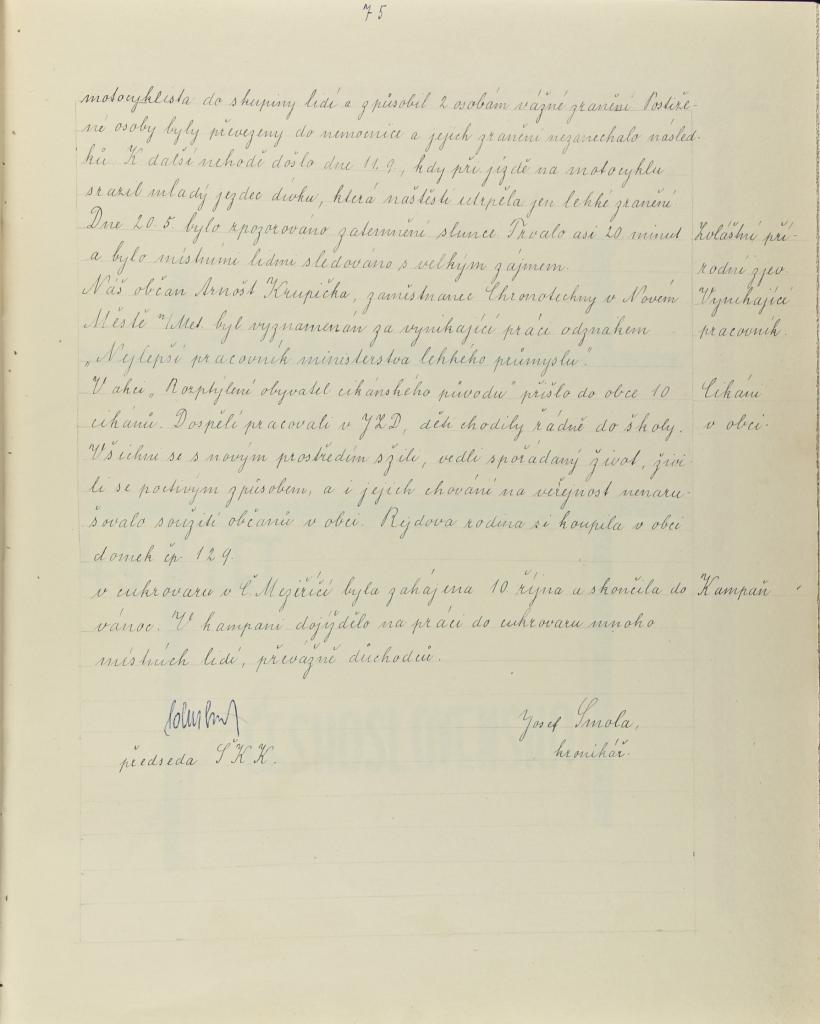 75
motocyklista do skupiny lidí a způsobil 2 osobám vážné zranění. Postiže-
né osoby byly převezeny do nemocnice a jejich zranění nezanechalo násled-
ků. K další nehodě došlo dne 11.9., kdy při jízdě na motocyklu
srazil mladý jezdec dívku, která naštěstí utrpěla jen lehké zranění
Dne 20.5. bylo zpozorováno zatemnění slunce. Trvalo asi 20 minut
Zvláštní pří-
a bylo místními lidmi sledováno s velkým zájmem.
rodní zjev.
Náš občan Arnošt Krupička, zaměstnanec Chronotechny v Novém
Vynikající
Městě n/Met. byl vyznamenán za vynikající práci odznakem
pracovník.
„Nejlepší pracovník ministerstva lehkého průmyslu".
V akci „Rozptýlení obyvatel cikánského původu" přišlo do obce 10
Cikáni
cikánů. Dospělí pracovali v JZD, děti chodily řádně do školy.
v obci.
Všichni se s novým prostředím sžili, vedli spořádaný život, živi-
li se poctivým způsobem, a i jejich chování na veřejnost nenaru-
šovalo soužití občanů v obci. Rajdova rodina si koupila v obci
domek čp. 129.
v cukrovaru v Č. Meziříčí byla zahájena 10 října a skončila do
Kampaň
vánoc. V kampani dojíždělo na práci do cukrovaru mnoho
místních lidí, převážně důchodců.
Josef Smola,
předseda ŠKK.
kronikář.